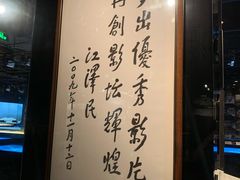 出優秀影片
再創影坛輝煌
江澤民
二〇〇九年十一月十二日